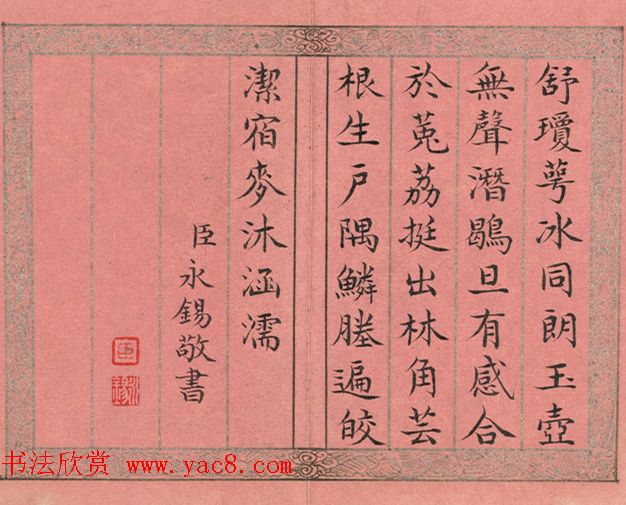 舒瓊萼冰同朗玉壺
無聲潛鶡旦有感合
於菟荔挺出林角芸
根生戶隅鱗塍遍皎
潔宿麥沐涵濡
臣永錫敬書
臣
永錫
书法欣赏 www.yac8.com